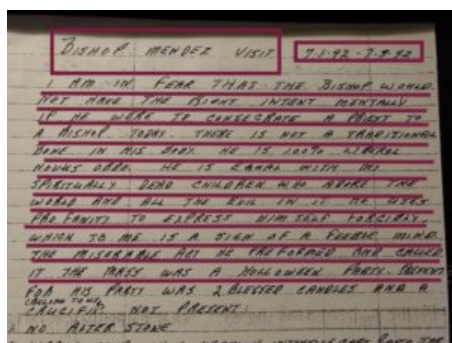 BISHOP MENDEZ VISIT 7-1-92 - 7-9-92
I AM IN FEAR THAT THE BISHOP WOULD
NOT HAVE THE RIGHT INTENT MENTALLY
IF HE WERE TO CONSECRATE A PRIEST TO
A BISHOP TODAY. THERE IS NOT A TRADITIONAL
BONE IN HIS BODY. HE IS 100% LIBERAL
NOVUS ORDO. HE IS EQUAL WITH MY
SPIRITUALLY DEAD CHILDREN WHO ADORE THE
WORLD AND ALL THE EVIL IN IT. HE USES
PROFANITY TO EXPRESS HIMSELF FORCIBLY,
WHICH TO ME IS A SIGN OF A FEEBLE MIND.
THE MISERABLE ACT HE PREFORMED AND CALLED
IT THE MASS WAS A HOLLOWEEN PARTY. PRESENT
FOR HIS PARTY WAS 2 BLESSED CANDLES AND A
CRUCIFIX NOT PRESENT:
NO ALTER STONE